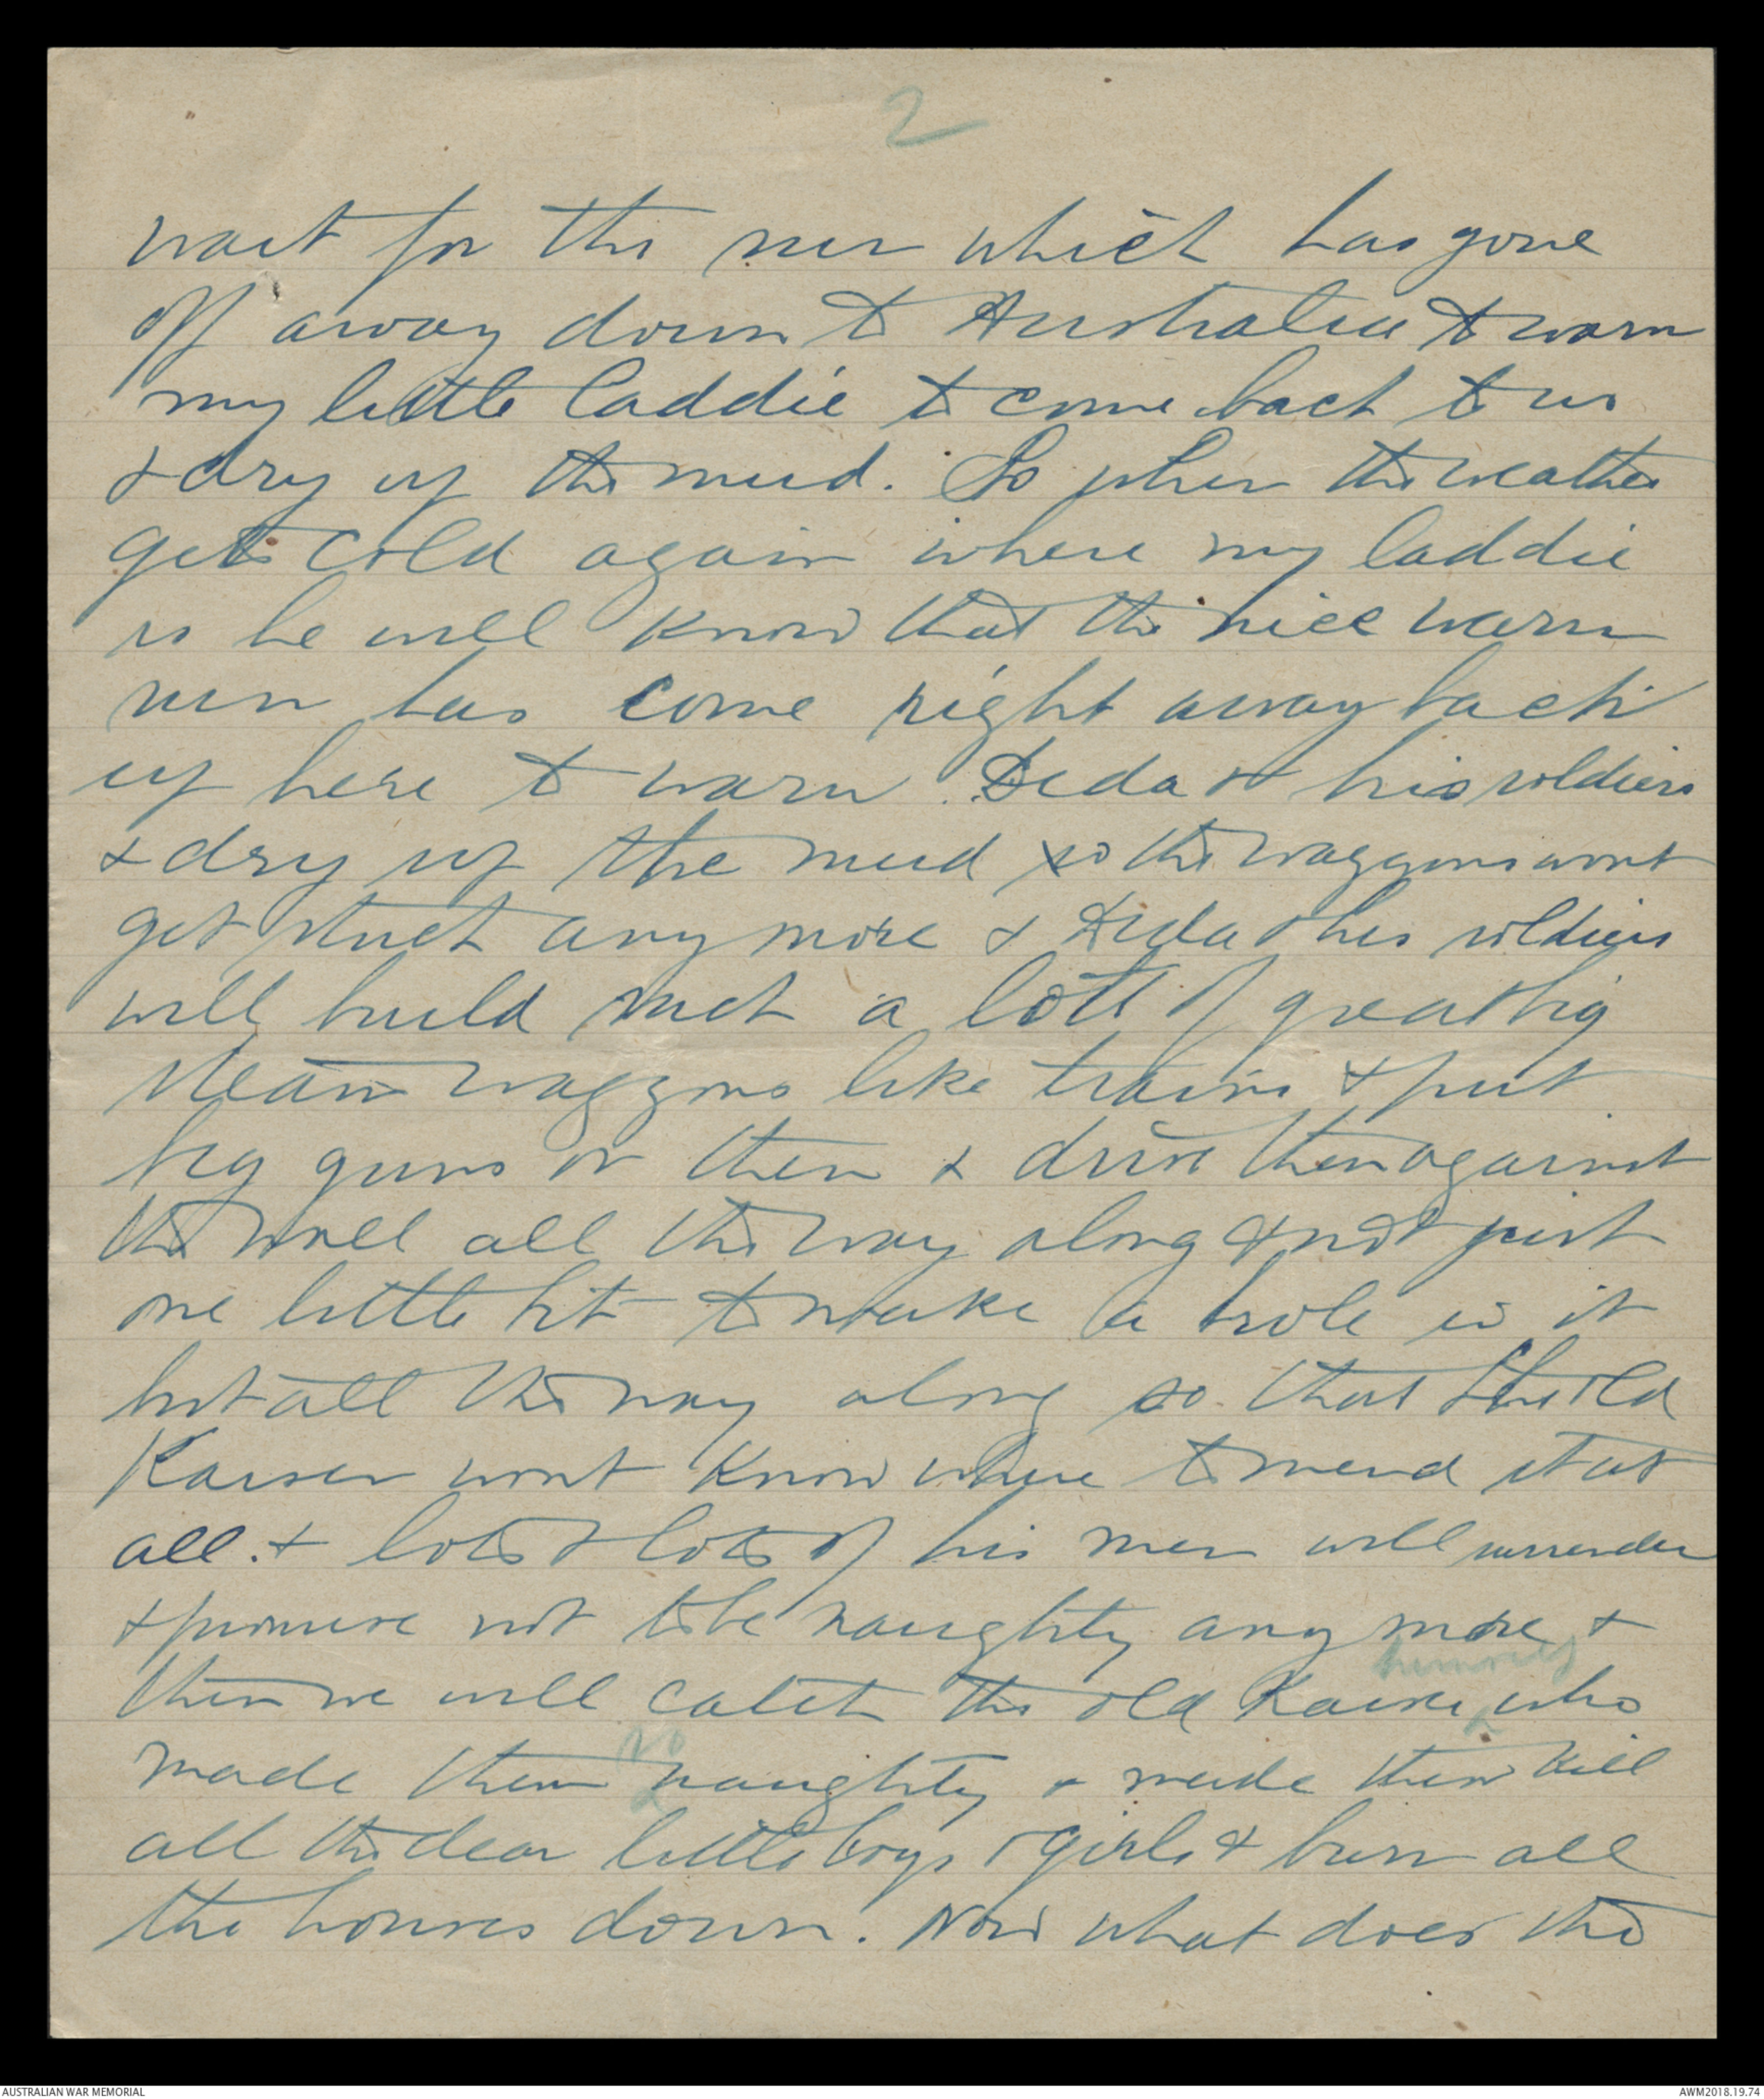 2
wait for the sun which has gone
off away down to Australia to warm
my little laddie to come back to us
& dry up the mud. So when the weather
gets cold again where my laddie
is he will know that the nice warm
sun has come right away back
up here to warm Dida & his soldiers
& dry up the mud so the waggons wont
get stuck any more & Dida & his soldiers
will build such a lott of great big
steam waggons like trains & put
big guns on them & drive them against
the wall all the way along & not just
one little bit to make a hole in it
but all the way along so that the old
Kaiser wont know where to mend it at
all. & lots & lots of his men will surrender
& promise not to be naughty any more &
then we will catch the old Kaiser himself who
made them so naughty & made them kill
all the dear little boys & girls & burn all
the houses down. Now what does the
AUSTRALIAN WAR MEMORIAL
AWM2018.19.74